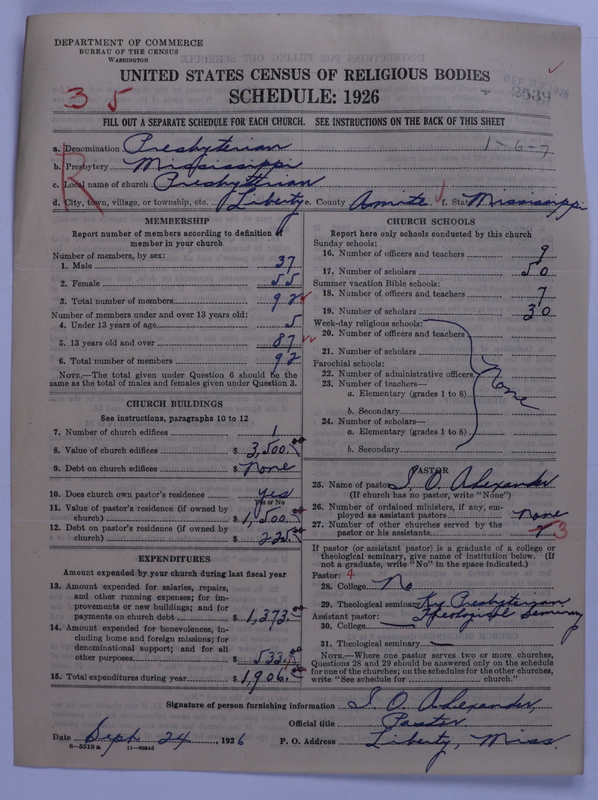 DEPARTMENT OF COMMERCE
BUREAU OF THE CENSUS
WASHINGTON
UNITED STATES CENSUS OF RELIGIOUS BODIES
SCHEDULE: 1926
3 5
2539
FILL OUT A SEPARATE SCHEDULE FOR EACH CHURCH. SEE INSTRUCTIONS ON THE BACK OF THIS SHEET
1-6-7
R
a. Denomination Presbyterian
b. Presbytery Mississippi
c. Local name of church Presbyterian
d. City, town, village, or township, etc. Liberty e. County Amite f. State Mississippi
MEMBERSHIP
Report number of members according to definition of member in your church
Number of members, by sex:
1. Male 37
2. Female 55
3. Total number of members 92
Number of members under and over 13 years old:
4. Under 13 years of age 5
5. 13 years old and over 87
6. Total number of members 92
NOTE.—The total given under Question 6 should be the same as the total of males and females given under Question 3.
CHURCH BUILDINGS
See instructions, paragraphs 10 to 12
7. Number of church edifices 1
8. Value of church edifices $ 3,500.00
9. Debt on church edifices $ None
10. Does church own pastor's residence yes
Yes or No
11. Value of pastor's residence (if owned by church) $ 1,500.00
12. Debt on pastor's residence (if owned by church) $ 225.00
EXPENDITURES
Amount expended by your church during last fiscal year
13. Amount expended for salaries, repairs, and other running expenses; for improvements or new buildings; and for payments on church debt $ 1,373.
14. Amount expended for benevolences, including home and foreign missions; for denominational support; and for all other purposes $ 533.
15. Total expenditures during year $ 1,906.
CHURCH SCHOOLS
Report here only schools conducted by this church
Sunday schools:
16. Number of officers and teachers 9
17. Number of scholars 50
Summer vacation Bible schools:
18. Number of officers and teachers 7
19. Number of scholars 30
Week-day religious schools:
20. Number of officers and teachers
21. Number of scholars
Parochial schools:
22. Number of administrative officers
23. Number of teachers—
a. Elementary (grades 1 to 8)
b. Secondary
24. Number of scholars—
a. Elementary (grades 1 to 8)
b. Secondary
None
PASTOR
25. Name of pastor I. O. Alexander
(If church has no pastor, write "None")
26. Number of ordained ministers, if any, employed as assistant pastors None
27. Number of other churches served by the pastor or his assistants 3
If pastor (or assistant pastor) is a graduate of a college or theological seminary, give name of institution below. (If not a graduate, write "No" in the space indicated.)
Pastor: 4
28. College No
29. Theological seminary Ky Presbyterian
Assistant pastor: Theological Seminary
30. College
31. Theological seminary —
NOTE.—Where one pastor serves two or more churches, Questions 28 and 29 should be answered only on the schedule for one of the churches; on the schedules for the other churches, write "See schedule for ........ church."
Signature of person furnishing information I. O. Alexander,
Official title Pastor
Date Sept 24, 1926 P. O. Address Liberty, Miss.
8—5510a 11—9604d